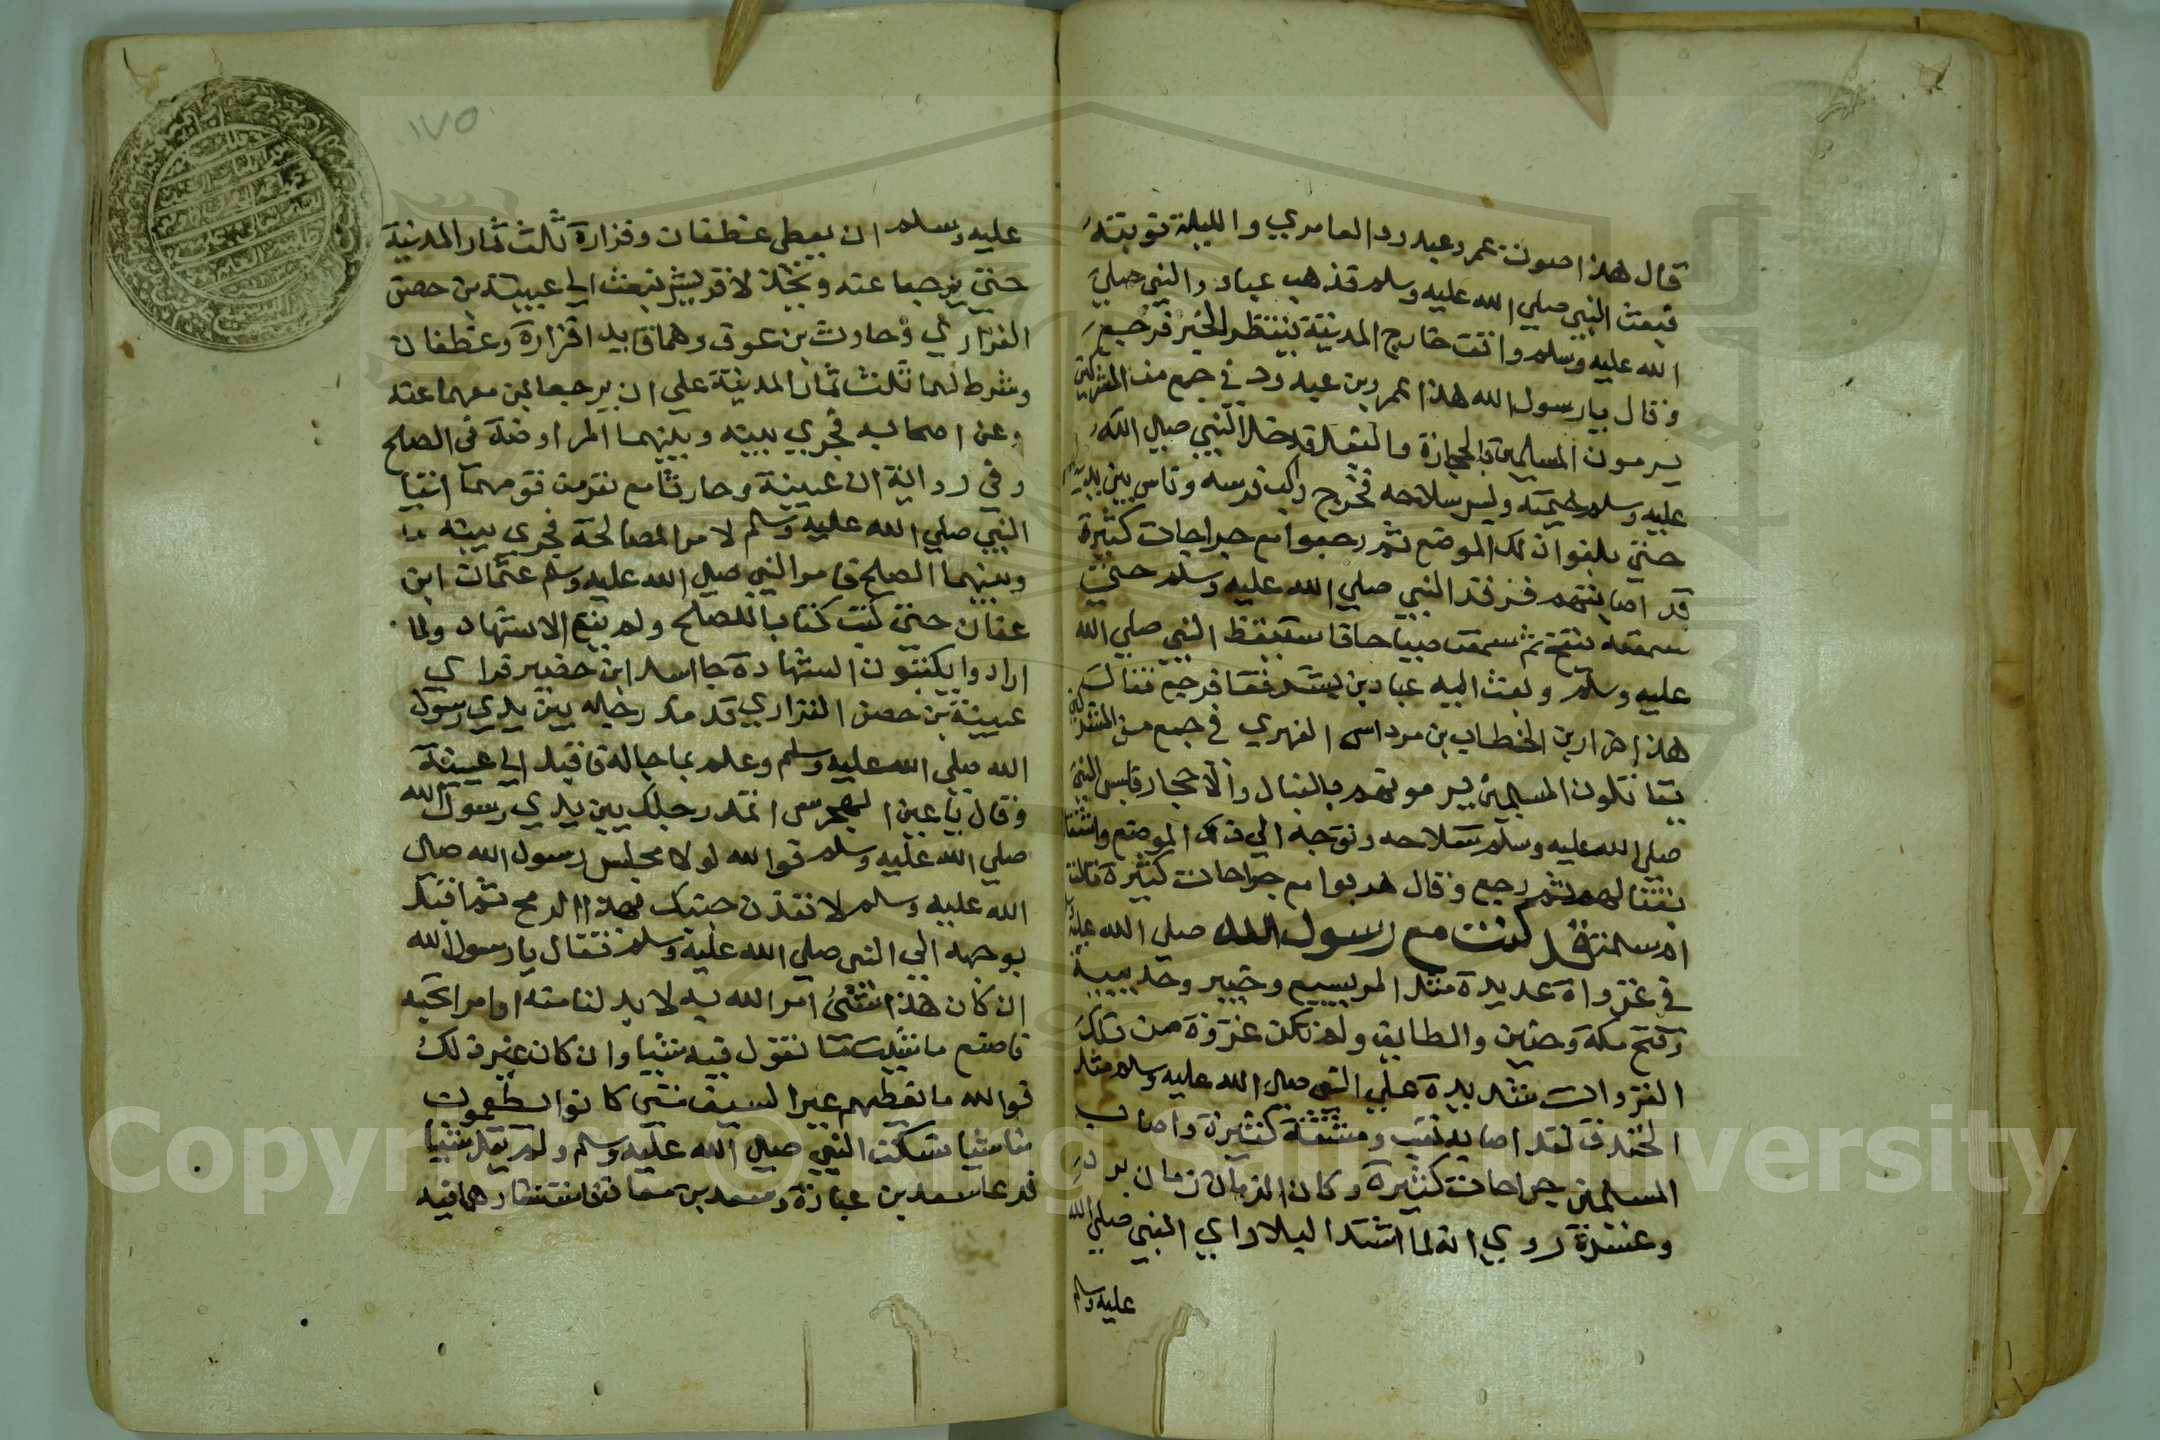 قال هذا صوت عمرو عبد ود العامري والليلة نوبته
فبعث النبي صلي الله عليه وسلم فذهب عباد والنبي صلي
الله عليه وسلم واقف خارج المدينة ينتظر الخبر فرجع
وقال يا رسول الله هذا عمرو بن عبد ود في جمع من المشركين
يرمون المسلمين بالحجارة والنبل فدخل النبي صلي الله
عليه وسلم خيمته ولبس سلاحه فخرج راكب فرسه وناس بين يديه
حتي بلغوا ذلك الموضع ثم رجعوا مع جراحات كثيرة
قد اصابتهم فرقد النبي صلي الله عليه وسلم حتي
سمعته ينفخ ثم سمعت صياحا فاستيقظ النبي صلي الله
عليه وسلم وبعث اليه عباد بن بشر فرجع فقال
هذا ضرار بن الخطاب بن مرداس الفهري في جمع من المشركين
يقاتلون المسلمين يرمونهم بالنبال والاحجار فلبس النبي
صلي الله عليه وسلم سلاحه وتوجه الي ذلك الموضع واشتغل
بقتالهم ثم رجع وقال هربوا مع جراحات كثيرة قالت
ام سلمة قد كنت مع رسول الله صلي الله عليه وسلم
في غزواة عديدة مثل المريسيع وخيبر وحديبية
وفتح مكة وحنين والطايف ولم تكن غزوة من تلك
الغزوات شديدة علي النبي صلي الله عليه وسلم مثل
الخندق لقد اصابه تعب ومشقة كثيرة واصاب
المسلمين جراحات كثيرة وكان الزمان زمان برد
وعسرة روي انه لما اشتد البلا راي النبي صلي الله
عليه وسلم
١٧٥
عليه وسلم ان يعطي غطفان وفزارة ثلث ثمار المدينة
حتي يرجعا عنه قريش فبعث الي عيينة بن حصن
الفزاري وحارث بن عوف وهما قايدا فزارة وغطفان
وشرط لهما ثلث ثمار المدينة علي ان يرجعا بمن معهما عنه
وعن اصحابه فجري بينه وبينهما المراوضة في الصلح
وفي رواية ان عيينة وحارثا مع نفر من قومهما اتيا
النبي صلي الله عليه وسلم لامر المصالحة فجري بينه
وبينهما الصلح فامر النبي صلي الله عليه وسلم عثمان ابن
عفان حتي كتب كتاب الصلح ولم يقع الاشهاد ولما
ارادوا يكتبون الشهادة جا اسد ابن حضير فراي
عيينة بن حصن الفزاري قد مد رجله بين يدي رسول
الله صلي الله عليه وسلم وعلم بما جا له فاقبل الي عيينة
وقال يا عين الهجرس اتمد رجلك بين يدي رسول الله
صلي الله عليه وسلم فوالله لولا مجلس رسول الله صلي
الله عليه وسلم لانفذن جنبك بهذا الرمح ثم اقبل
بوجهه الي النبي صلي الله عليه وسلم فقال يا رسول الله
ان كان هذا شئ امر الله به لا بد لنا منه او امر تحبه
فاصنع ما شيت ما نقول فيه شيا وان كان غير ذلك
فوالله ما نعطيهم غير السيف متي كانوا يطمعون
منا شيا فسكت النبي صلي الله عليه وسلم ولم يقل شيا
فدعا سعد بن عبادة وسعد بن معاذ فاستشارهما فيه
Copyright © King Saud University